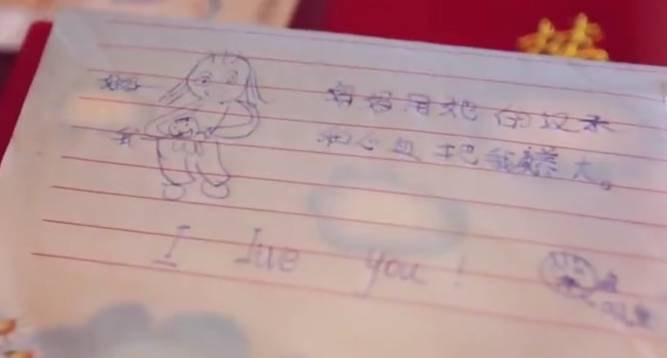 妈妈用她的汗水
和心血把我养大。
妈妈
我
I lve you!